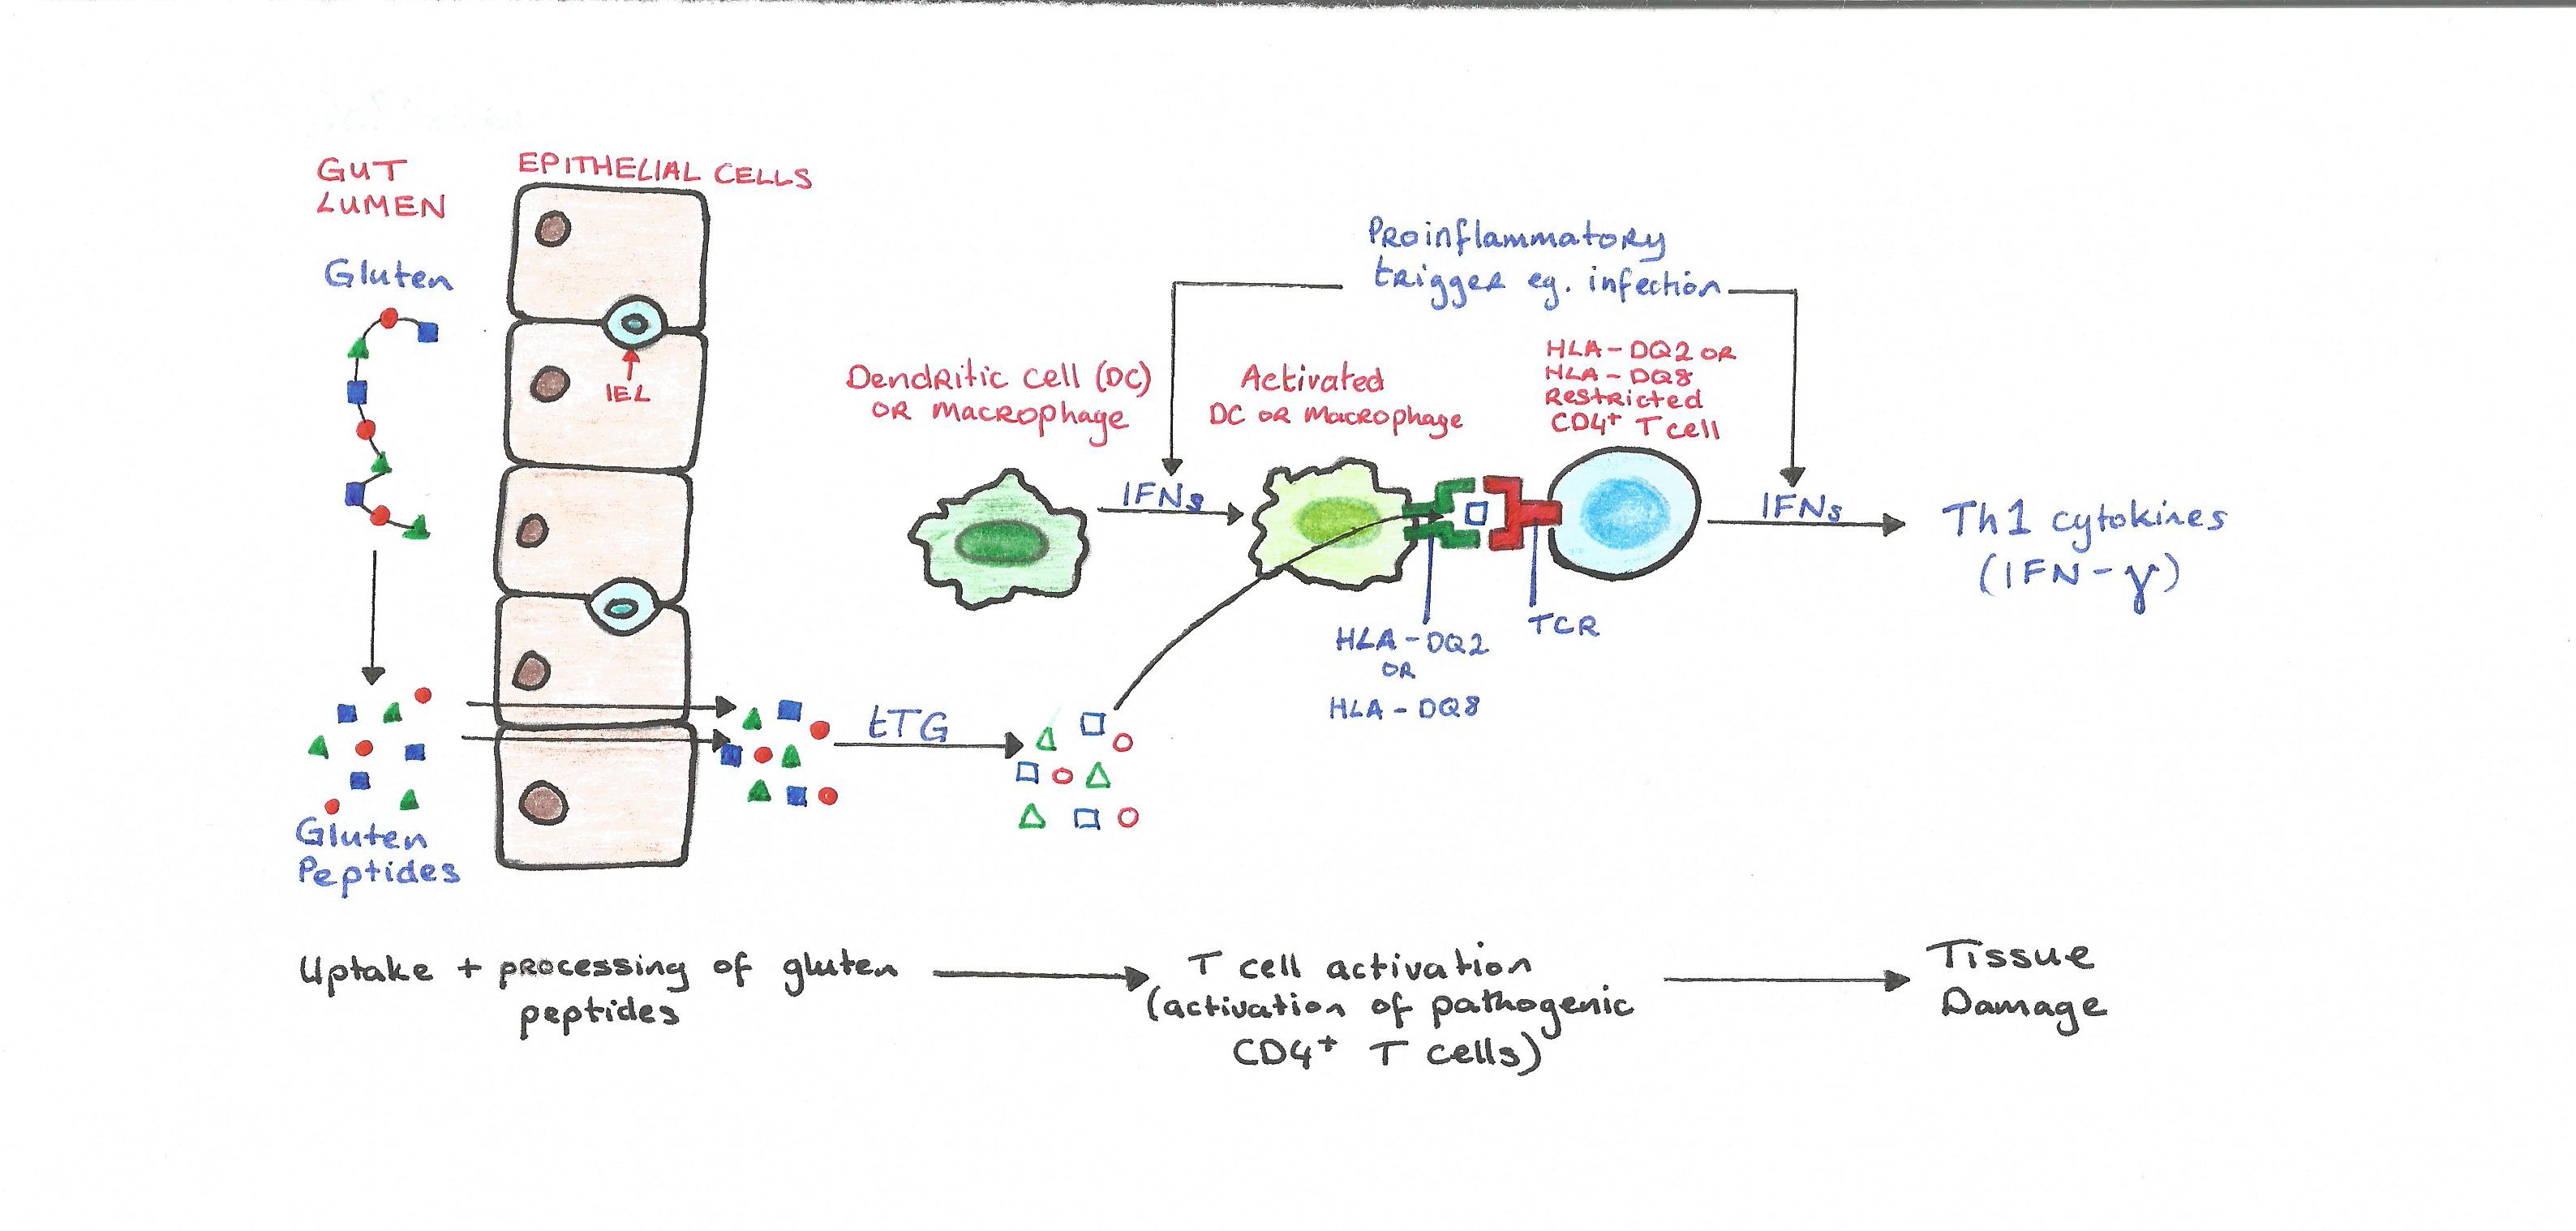 GUT
LUMEN
EPITHELIAL CELLS
Gluten
IEL
Proinflammatory
trigger eg. infection
Dendritic cell (DC)
OR Macrophage
Activated
DC OR Macrophage
HLA-DQ2 OR
HLA-DQ8
Restricted
CD4+ T cell
IFNs
IFNs
Th1 cytokines
(IFN-γ)
HLA-DQ2
OR
HLA-DQ8
TCR
tTG
Gluten
Peptides
Uptake + processing of gluten
peptides
T cell activation
(activation of pathogenic
CD4+ T cells)
Tissue
Damage